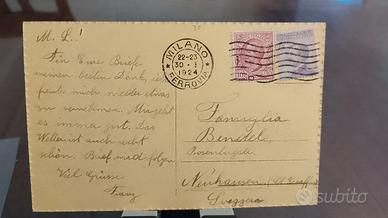 M. L.!
Für Eure Briefe
meinen besten Dank, es
freute mich wieder etwas
zu vernehmen. Mir geht
es immer gut. Das
Wetter ist auch recht
schön. Brief wird folgen.
Viel Grüsse
Franz
MILANO
22-23
30·I
1924
FERROVIA
Famiglia
Bendel
Neuhausen
Svizzera
subito